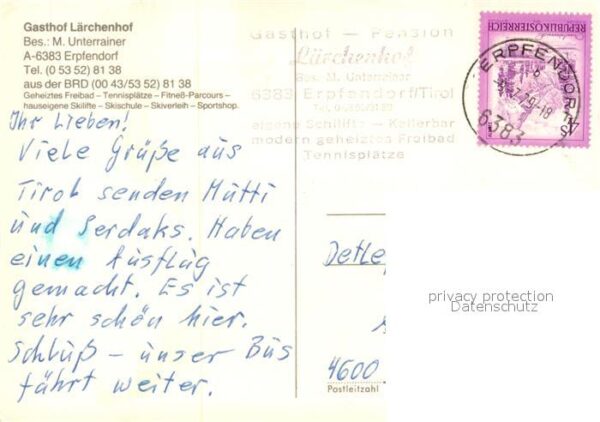 Gasthof Lärchenhof
Bes.: M. Unterrainer
A-6383 Erpfendorf
Tel. (0 53 52) 81 38
aus der BRD (00 43/53 52) 81 38
Geheiztes Freibad – Tennisplätze – Fitneß-Parcours –
hauseigene Skilifte – Skischule – Skiverleih – Sportshop.
Gasthof — Pension
Lärchenhof
Bes. M. Unterrainer
6383 Erpfendorf/Tirol
eigene Schilifte - Kellerbar
modern geheiztes Freibad
Tennisplätze
REPUBLIK ÖSTERREICH
S4
ERPFENDORF
6383
Ihr Lieben!
Viele Grüße aus
Tirol senden Mutti
und Serdaks. Haben
einen Ausflug
gemacht. Es ist
sehr schön hier.
Schluß – unser Bus
fährt weiter.
Detle
4600
Postleitzahl
privacy protection
Datenschutz